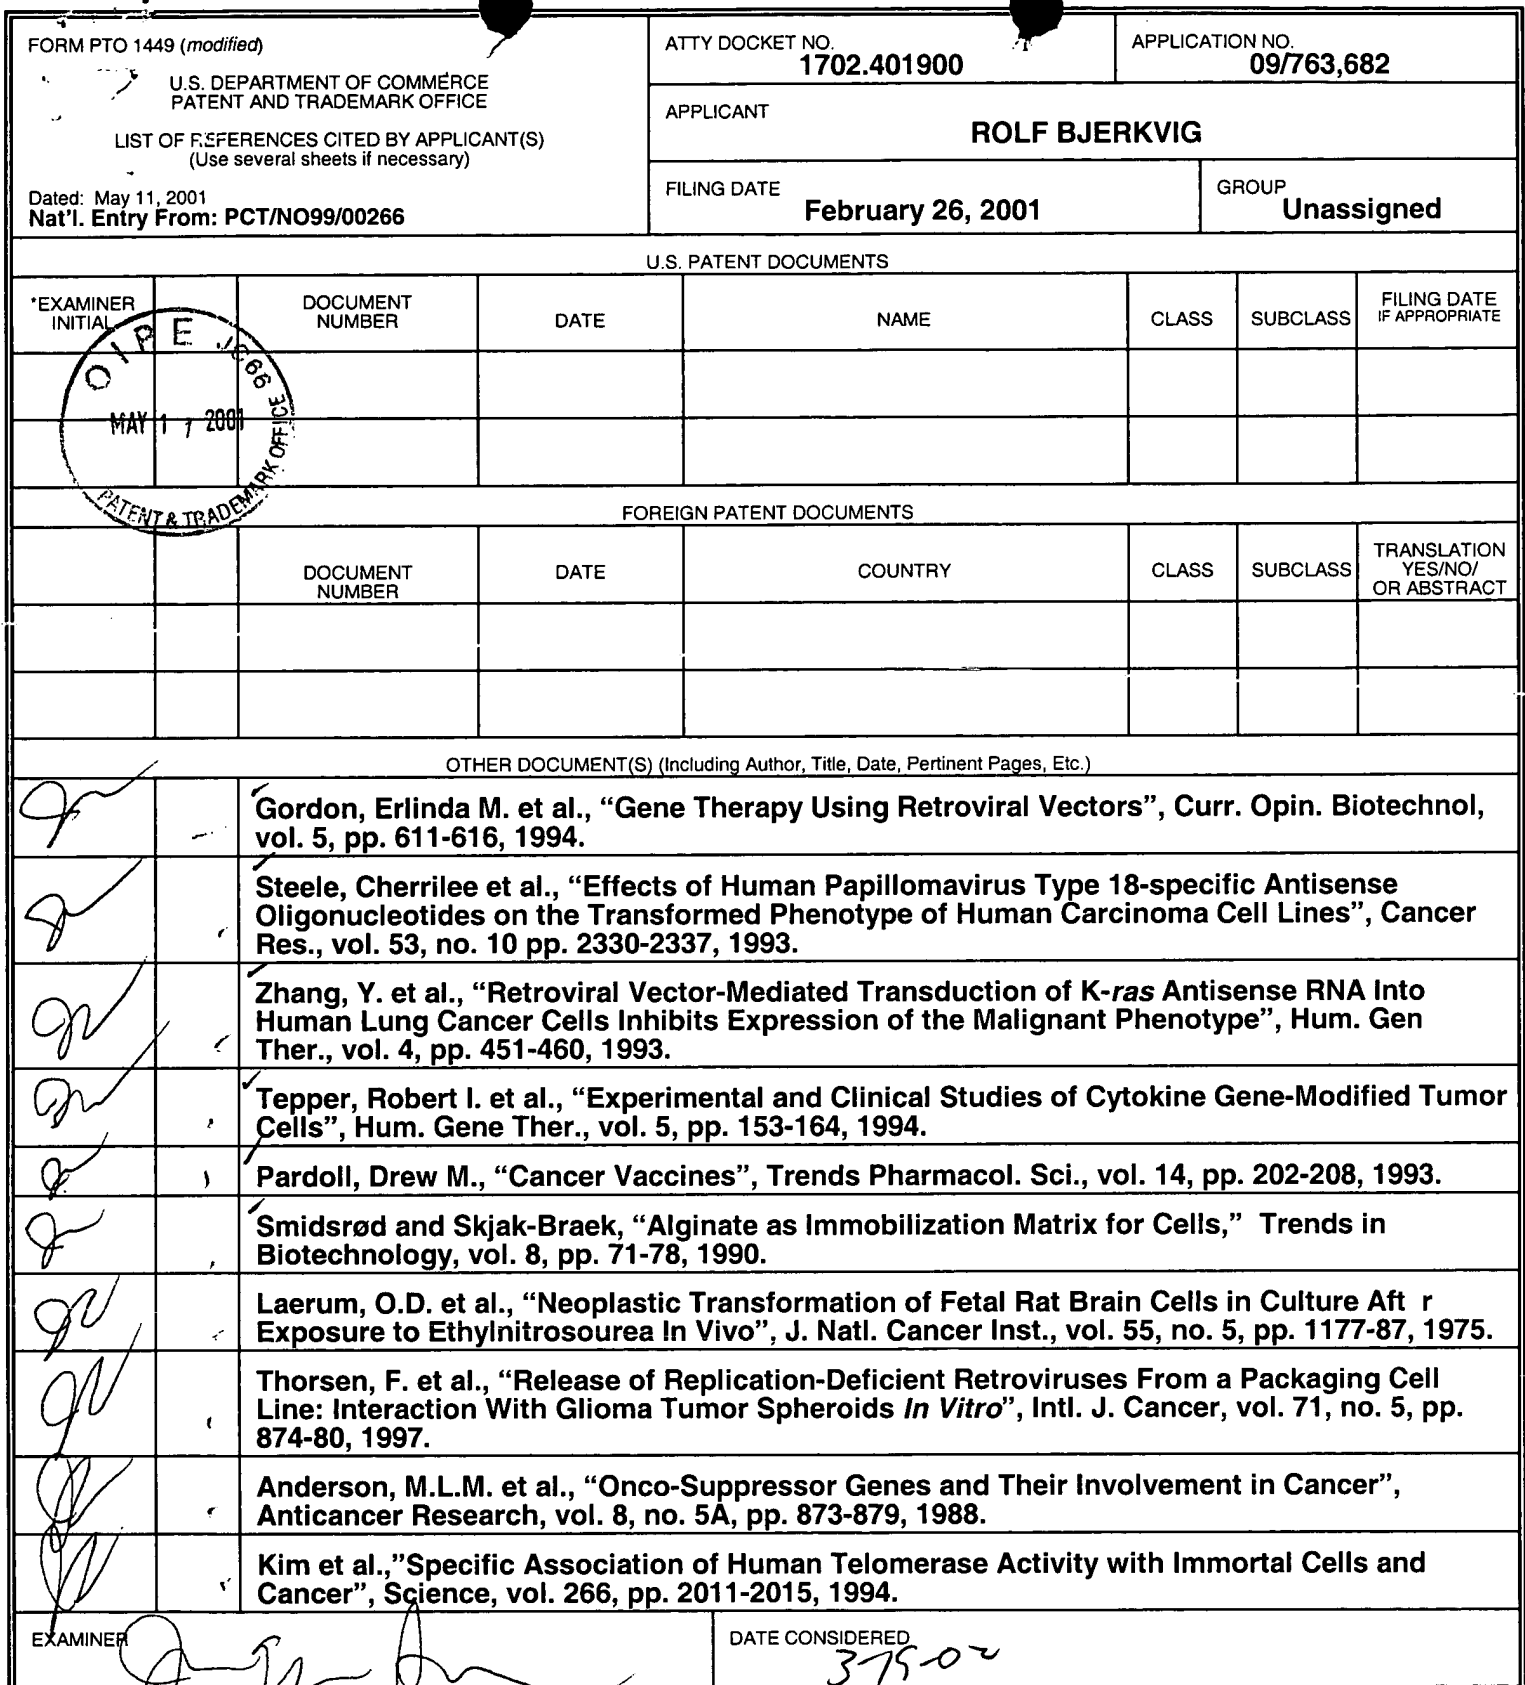 FORM PTO 1449 (modified)
U.S. DEPARTMENT OF COMMERCE
PATENT AND TRADEMARK OFFICE
LIST OF REFERENCES CITED BY APPLICANT(S)
(Use several sheets if necessary)
Dated: May 11, 2001
Nat'l. Entry From: PCT/NO99/00266
ATTY DOCKET NO.
1702.401900
APPLICATION NO.
09/763,682
APPLICANT
ROLF BJERKVIG
FILING DATE
February 26, 2001
GROUP
Unassigned
U.S. PATENT DOCUMENTS
*EXAMINER
INITIAL
DOCUMENT
NUMBER
DATE
NAME
CLASS
SUBCLASS
FILING DATE
IF APPROPRIATE
OIPE JC66
MAY 17 2001
PATENT & TRADEMARK OFFICE
FOREIGN PATENT DOCUMENTS
DOCUMENT
NUMBER
DATE
COUNTRY
CLASS
SUBCLASS
TRANSLATION
YES/NO/
OR ABSTRACT
OTHER DOCUMENT(S) (Including Author, Title, Date, Pertinent Pages, Etc.)
Gordon, Erlinda M. et al., “Gene Therapy Using Retroviral Vectors”, Curr. Opin. Biotechnol,
vol. 5, pp. 611-616, 1994.
Steele, Cherrilee et al., “Effects of Human Papillomavirus Type 18-specific Antisense
Oligonucleotides on the Transformed Phenotype of Human Carcinoma Cell Lines”, Cancer
Res., vol. 53, no. 10 pp. 2330-2337, 1993.
Zhang, Y. et al., “Retroviral Vector-Mediated Transduction of K-ras Antisense RNA Into
Human Lung Cancer Cells Inhibits Expression of the Malignant Phenotype”, Hum. Gen
Ther., vol. 4, pp. 451-460, 1993.
Tepper, Robert I. et al., “Experimental and Clinical Studies of Cytokine Gene-Modified Tumor
Cells”, Hum. Gene Ther., vol. 5, pp. 153-164, 1994.
Pardoll, Drew M., “Cancer Vaccines”, Trends Pharmacol. Sci., vol. 14, pp. 202-208, 1993.
Smidsrød and Skjak-Braek, “Alginate as Immobilization Matrix for Cells,” Trends in
Biotechnology, vol. 8, pp. 71-78, 1990.
Laerum, O.D. et al., “Neoplastic Transformation of Fetal Rat Brain Cells in Culture Aft r
Exposure to Ethylnitrosourea In Vivo”, J. Natl. Cancer Inst., vol. 55, no. 5, pp. 1177-87, 1975.
Thorsen, F. et al., “Release of Replication-Deficient Retroviruses From a Packaging Cell
Line: Interaction With Glioma Tumor Spheroids In Vitro”, Intl. J. Cancer, vol. 71, no. 5, pp.
874-80, 1997.
Anderson, M.L.M. et al., “Onco-Suppressor Genes and Their Involvement in Cancer”,
Anticancer Research, vol. 8, no. 5A, pp. 873-879, 1988.
Kim et al.,”Specific Association of Human Telomerase Activity with Immortal Cells and
Cancer”, Science, vol. 266, pp. 2011-2015, 1994.
EXAMINER
DATE CONSIDERED